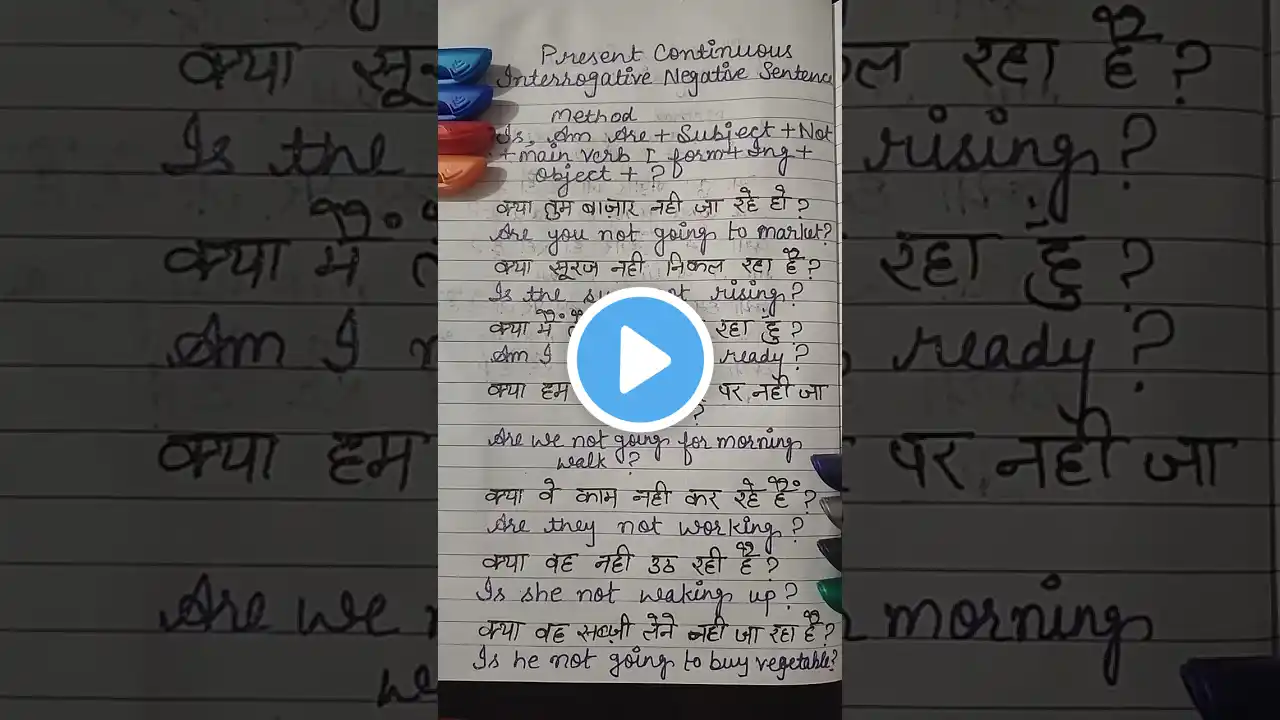 Present Continuous
Interrogative Negative Sentence
Method
Is, Am Are + Subject + Not
+ main verb I form + Ing +
object + ?
क्या तुम बाज़ार नही जा रहे हो?
Are you not going to market?
क्या सूरज नही निकल रहा है?
Is the rising?
क्या मैं रहा हुं?
Am I ready?
क्या हम पर नही जा
?
Are we not going for morning
walk?
क्या वे काम नही कर रहे हैं?
Are they not working?
क्या वह नही उठ रही है?
Is she not waking up?
क्या वह सब्ज़ी लेने नही जा रहा है?
Is he not going to buy vegetable?